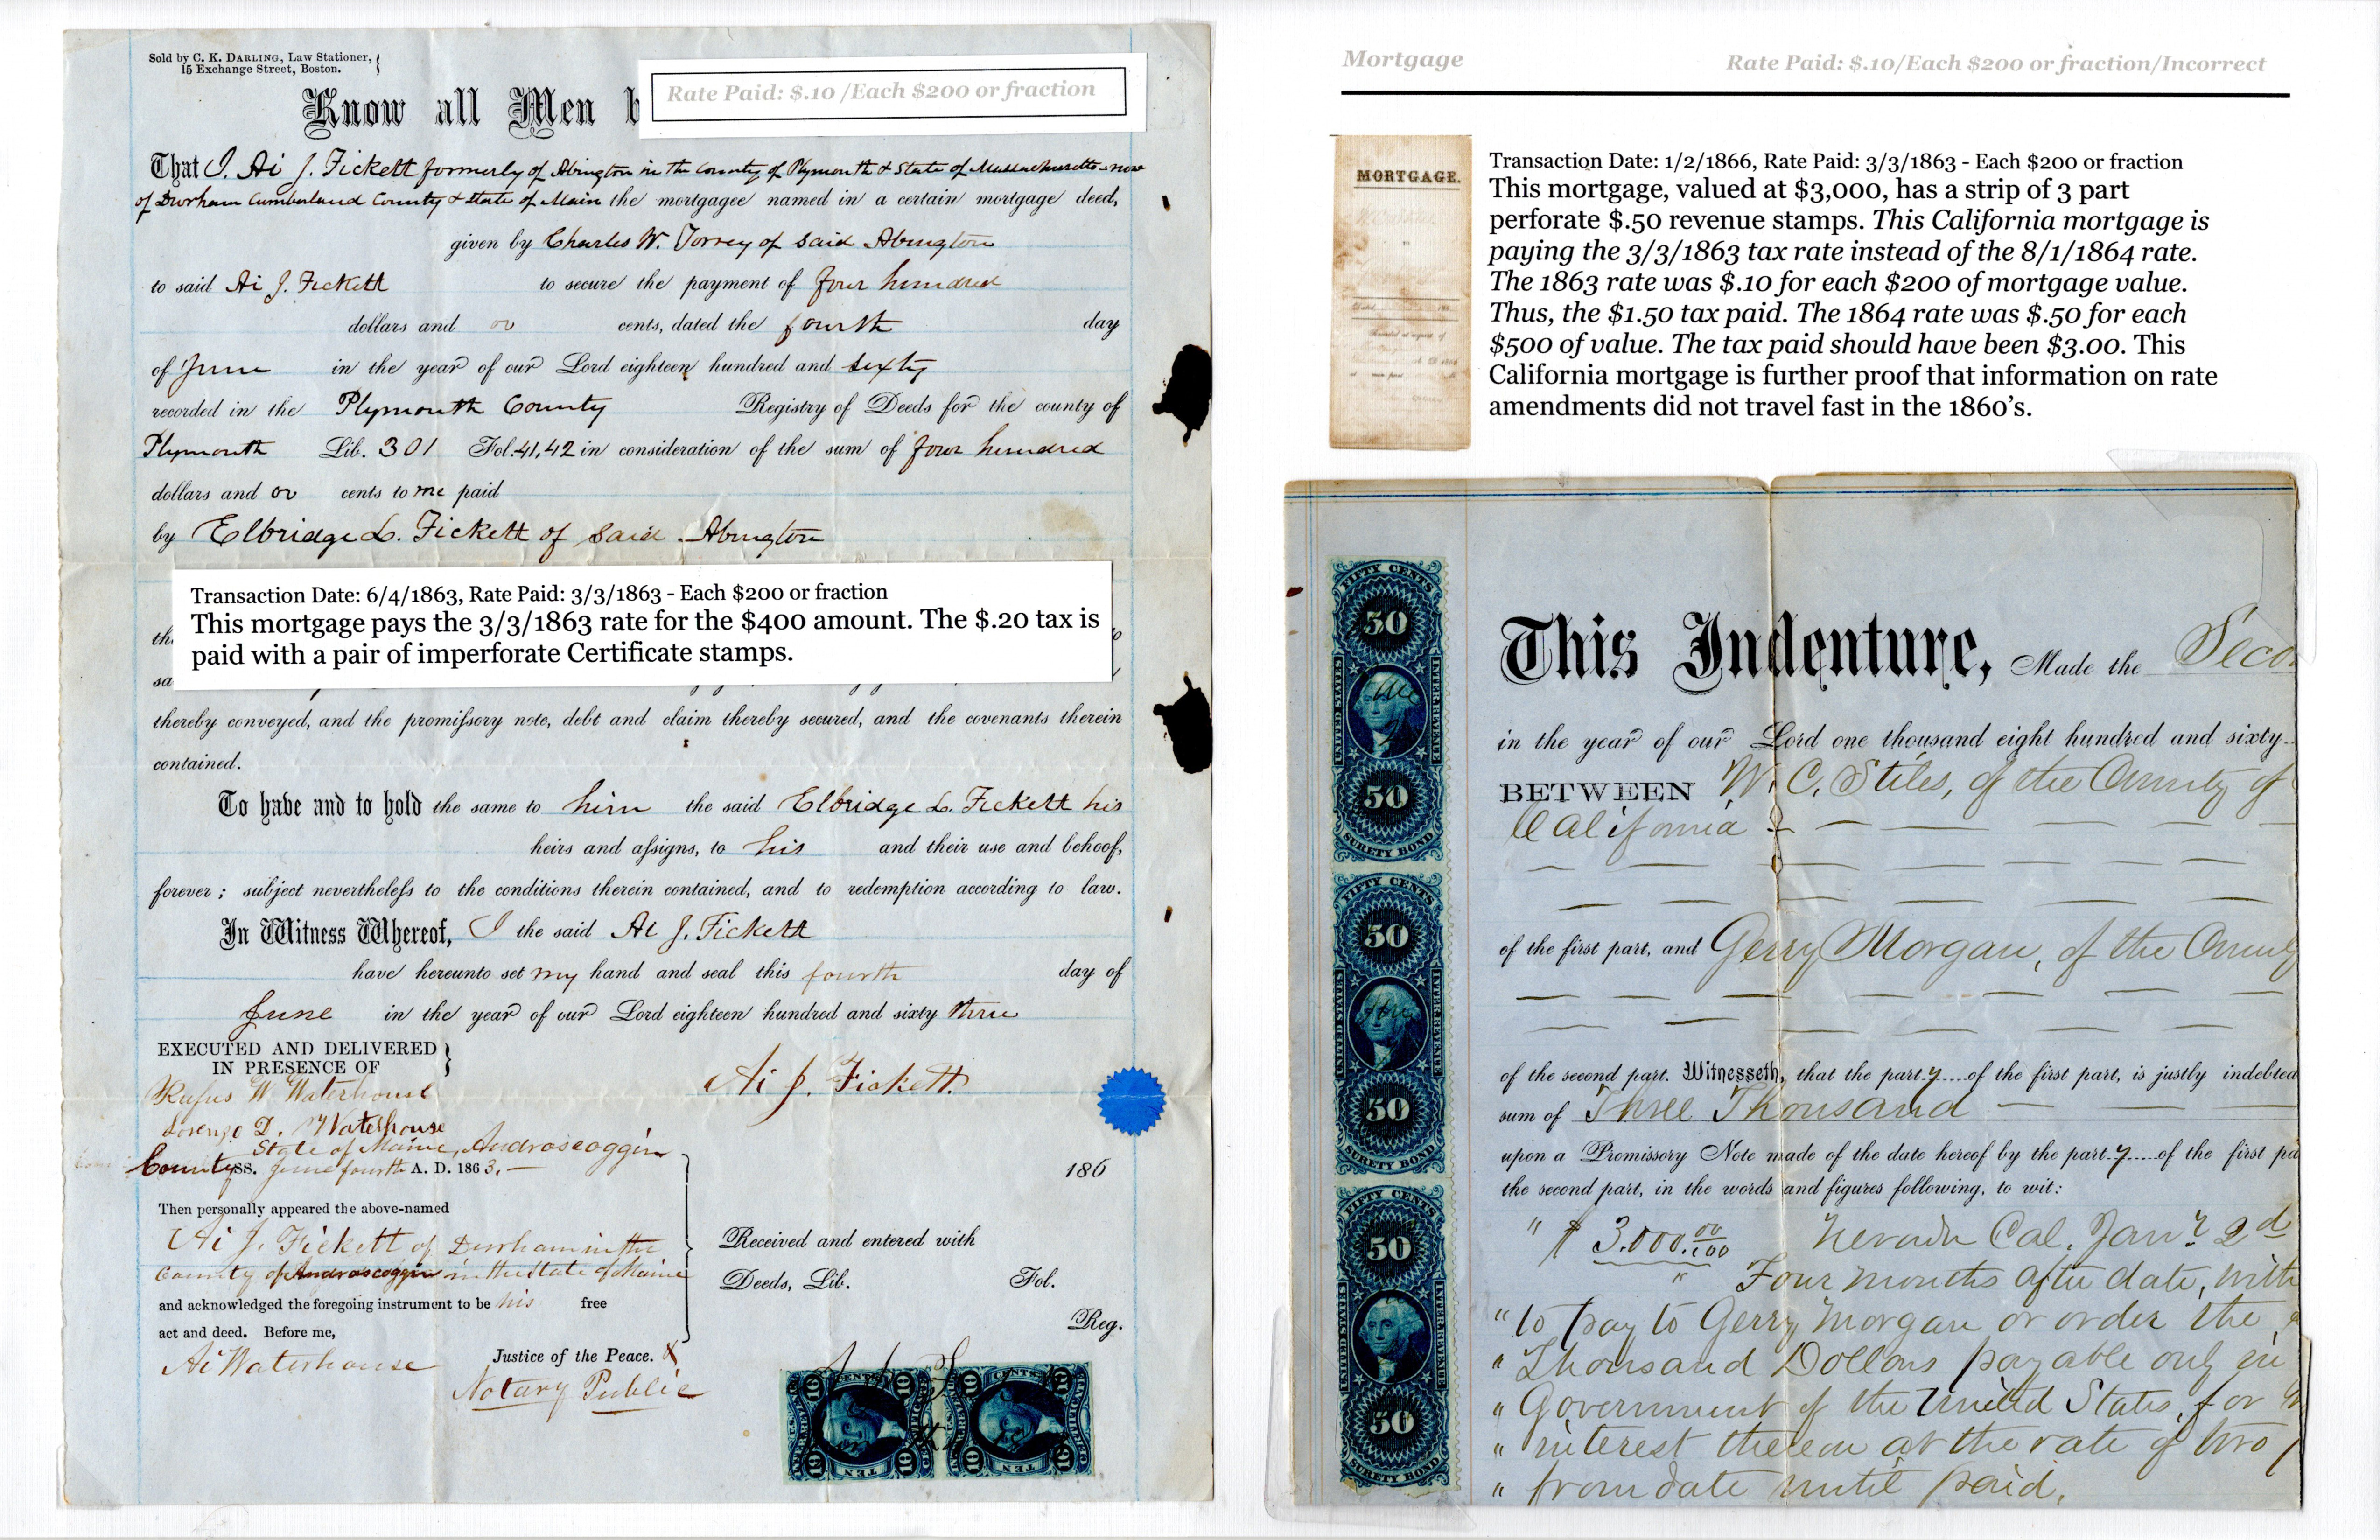 Sold by C. K. DARLING, Law Stationer,
15 Exchange Street, Boston.
Know all Men b
Rate Paid: $.10 /Each $200 or fraction
That I. Ai J. Fickett formerly of Abington in the County of Plymouth & State of Massachusetts now
of Durham Cumberland County & State of Main the mortgagee named in a certain mortgage deed,
given by Charles W. Torrey of said Abington
to said Ai J. Fickett to secure the payment of four hundred
dollars and oo cents, dated the fourth day
of June in the year of our Lord eighteen hundred and sixty
recorded in the Plymouth County Registry of Deeds for the county of
Plymouth Lib. 301 Fol. 41,42 in consideration of the sum of four hundred
dollars and oo cents to me paid
by Elbridge L. Fickett of said Abington
Transaction Date: 6/4/1863, Rate Paid: 3/3/1863 - Each $200 or fraction
This mortgage pays the 3/3/1863 rate for the $400 amount. The $.20 tax is
paid with a pair of imperforate Certificate stamps.
thereby conveyed, and the promissory note, debt and claim thereby secured, and the covenants therein
contained.
To have and to hold the same to him the said Elbridge L. Fickett his
heirs and assigns, to his and their use and behoof,
forever; subject nevertheless to the conditions therein contained, and to redemption according to law.
In Witness Whereof, I the said Ai J. Fickett
have hereunto set my hand and seal this fourth day of
June in the year of our Lord eighteen hundred and sixty three
EXECUTED AND DELIVERED
IN PRESENCE OF
Ai J. Fickett.
Rufus W. Waterhouse
Lorenzo D. Waterhouse
State of Maine, Androscoggin
County SS. June fourth A. D. 1863.
186
Then personally appeared the above-named
Ai J. Fickett of Durham in the
County of Androscoggin in the State of Maine
and acknowledged the foregoing instrument to be his free
act and deed. Before me,
Ai Waterhouse Justice of the Peace. X
Notary Public
Received and entered with
Deeds, Lib. Fol.
Reg.
Mortgage Rate Paid: $.10/Each $200 or fraction/Incorrect
MORTGAGE.
Transaction Date: 1/2/1866, Rate Paid: 3/3/1863 - Each $200 or fraction
This mortgage, valued at $3,000, has a strip of 3 part
perforate $.50 revenue stamps. This California mortgage is
paying the 3/3/1863 tax rate instead of the 8/1/1864 rate.
The 1863 rate was $.10 for each $200 of mortgage value.
Thus, the $1.50 tax paid. The 1864 rate was $.50 for each
$500 of value. The tax paid should have been $3.00. This
California mortgage is further proof that information on rate
amendments did not travel fast in the 1860's.
FIFTY CENTS
50
UNITED STATES
INTER. REVENUE
50
SURETY BOND
FIFTY CENTS
50
UNITED STATES
INTER. REVENUE
50
SURETY BOND
FIFTY CENTS
50
UNITED STATES
INTER. REVENUE
50
SURETY BOND
This Indenture, Made the Seco
in the year of our Lord one thousand eight hundred and sixty
BETWEEN W. C. Stiles, of the County of
California
of the first part, and Gerry Morgan, of the County
of the second part. Witnesseth, that the party of the first part, is justly indebted
sum of Three Thousand
upon a Promissory Note made of the date hereof by the party of the first pa
the second part, in the words and figures following, to wit:
" $ 3.000.00/100 Nevada Cal. Jany 2d
" Four months after date, with
" to pay to Gerry Morgan or order the
" Thousand Dollars payable only in
" Government of the United States, for
" interest thereon at the rate of two
" from date until paid.